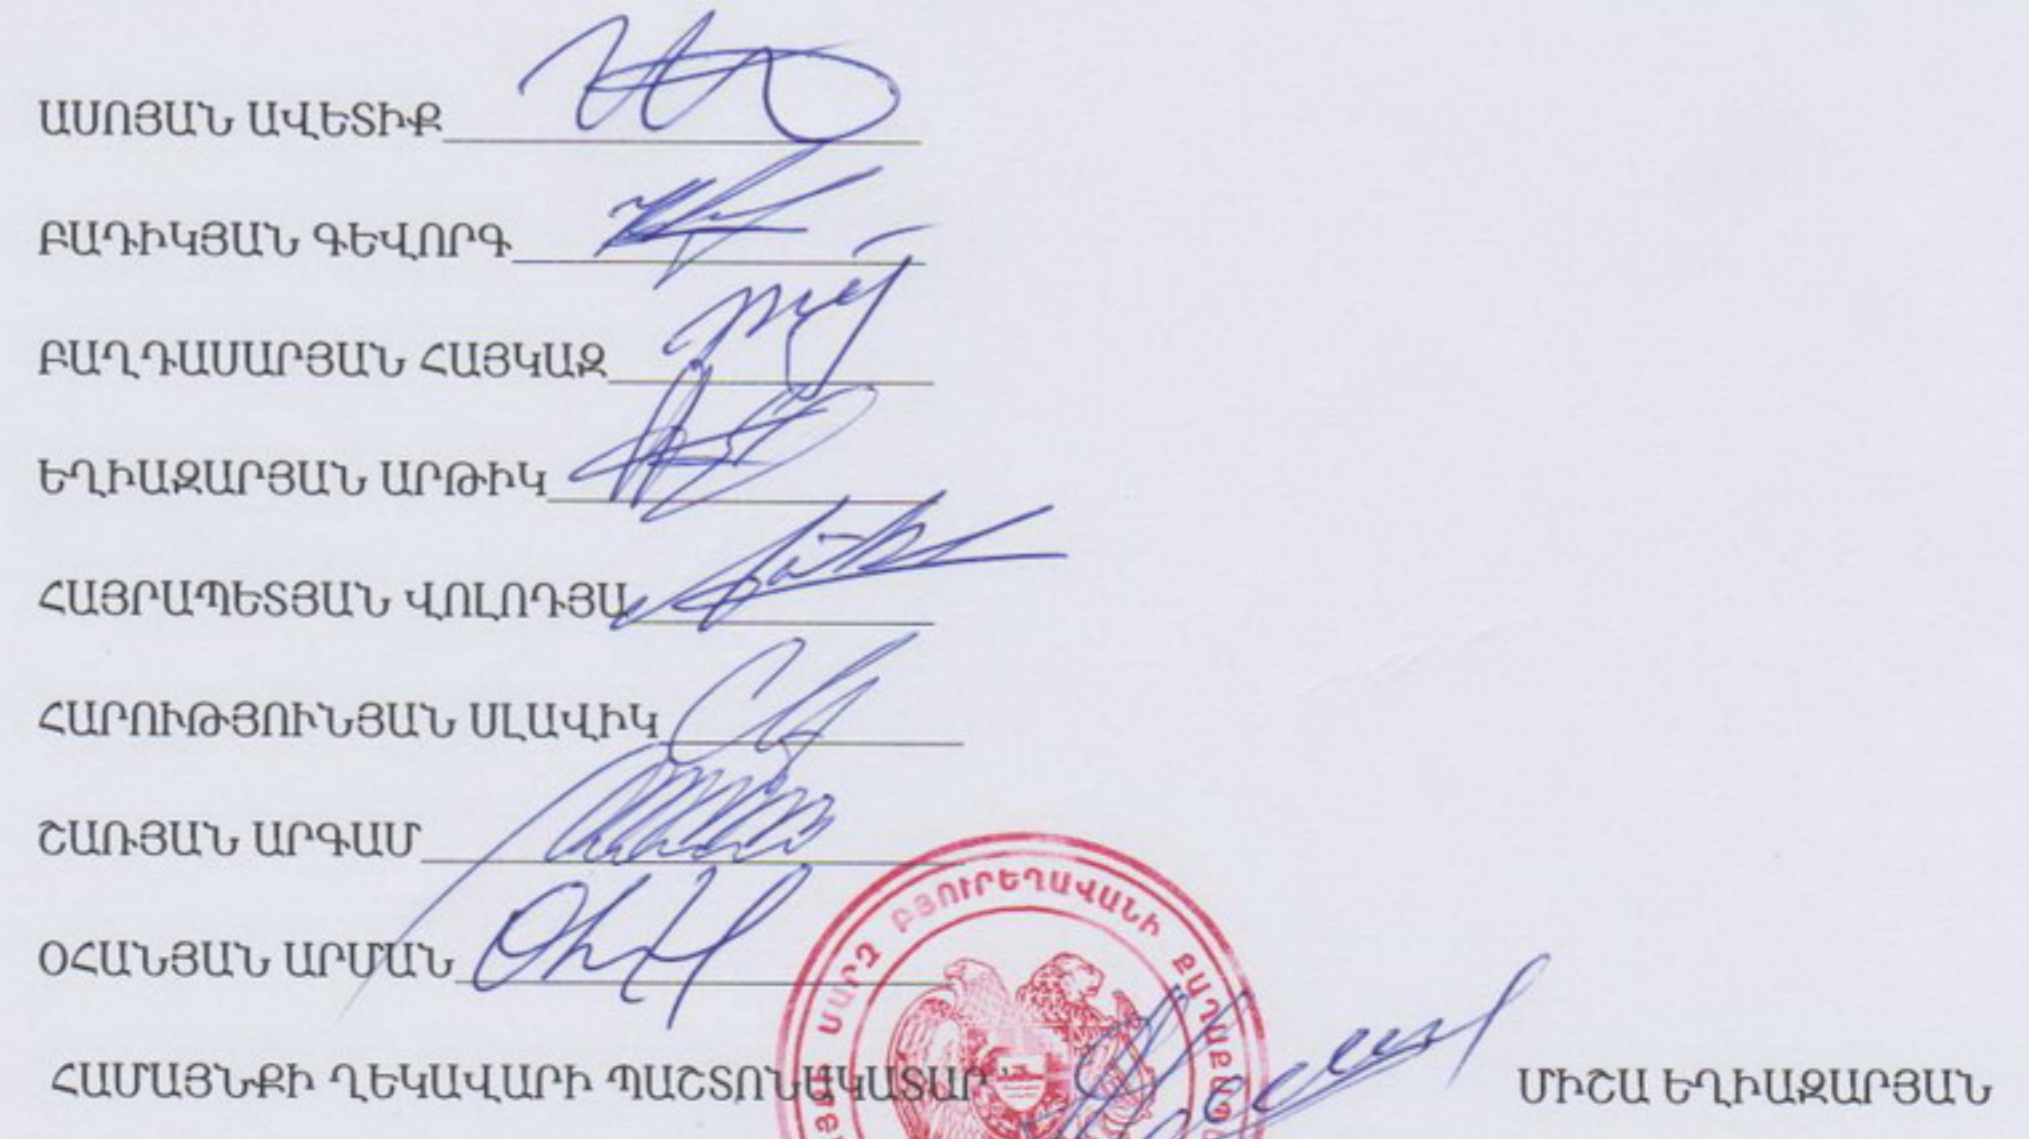 ԱՍՈՅԱՆ ԱՎԵՏԻՔ
ԲԱԴԻԿՅԱՆ ԳԵՎՈՐԳ
ԲԱՂԴԱՍԱՐՅԱՆ ՀԱՅԿԱԶ
ԵՂԻԱԶԱՐՅԱՆ ԱՐԹԻԿ
ՀԱՅՐԱՊԵՏՅԱՆ ՎՈԼՈԴՅԱ
ՀԱՐՈՒԹՅՈՒՆՅԱՆ ՍԼԱՎԻԿ
ՇԱՌՅԱՆ ԱՐԳԱՄ
ՕՀԱՆՅԱՆ ԱՐՄԱՆ
ՄԱՐԶ ԲՅՈՒՐԵՂԱՎԱՆԻ
ՀԱՄԱՅՆՔԻ ՂԵԿԱՎԱՐԻ ՊԱՇՏՈՆԱԿԱՏԱՐ ՄԻՇԱ ԵՂԻԱԶԱՐՅԱՆ